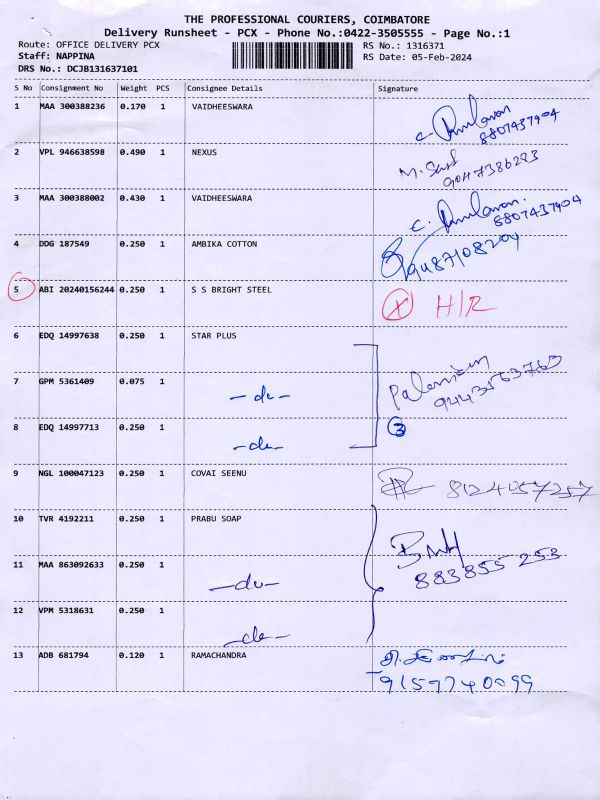 THE PROFESSIONAL COURIERS, COIMBATORE
Delivery Runsheet - PCX - Phone No.:0422-3505555 - Page No.:1
Route: OFFICE DELIVERY PCX RS No.: 1316371
Staff: NAPPINA RS Date: 05-Feb-2024
DRS No.: DCJB131637101
S No Consignment No Weight PCS Consignee Details Signature
1 MAA 300388236 0.170 1 VAIDHEESWARA
8807437904
2 VPL 946638598 0.490 1 NEXUS
3 MAA 300388002 0.430 1 VAIDHEESWARA
8807437904
4 DDG 187549 0.250 1 AMBIKA COTTON
9487108204
5 ABI 20240156244 0.250 1 S S BRIGHT STEEL X H/R
6 EDQ 14997638 0.250 1 STAR PLUS
7 GPM 5361409 0.075 1 -do-
9443563763
8 EDQ 14997713 0.250 1 -do- 3
9 NGL 100047123 0.250 1 COVAI SEENU 8124057257
10 TVR 4192211 0.250 1 PRABU SOAP
11 MAA 863092633 0.250 1 -do- 883855253
12 VPM 5318631 0.250 1 -do-
13 ADB 681794 0.120 1 RAMACHANDRA
9159740099